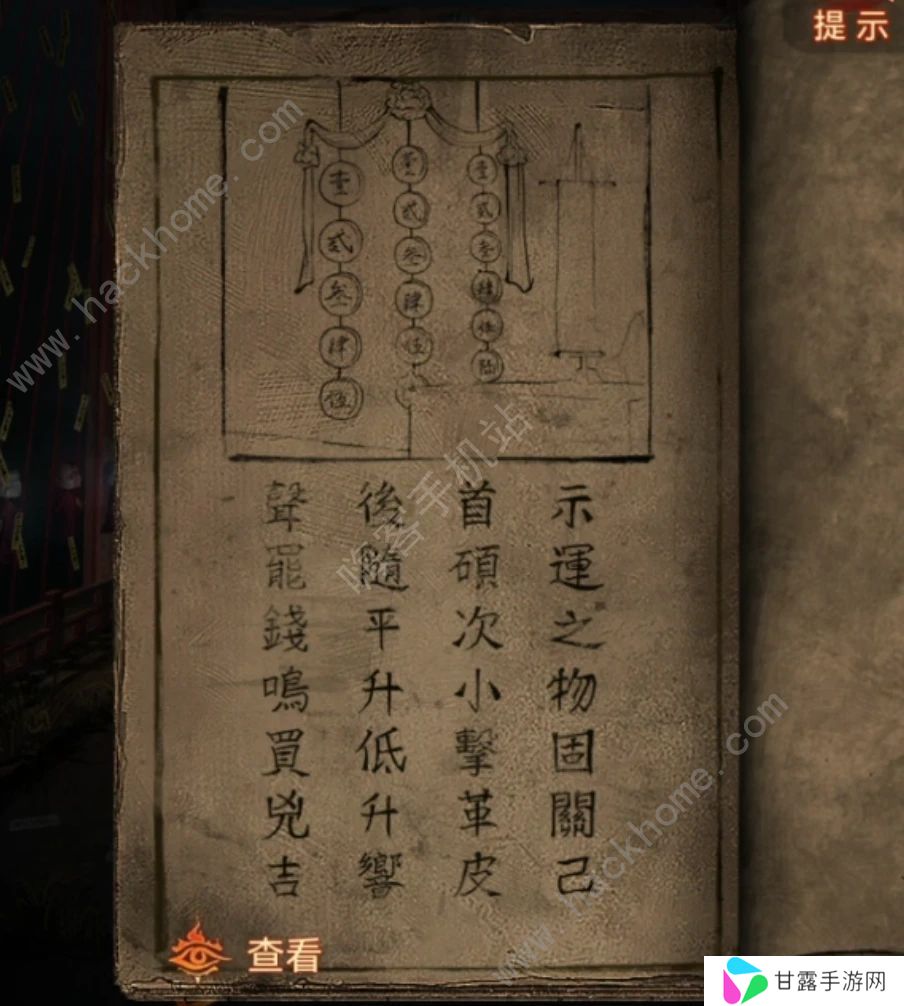 提示
壹 貳 叁 肆 伍
壹 貳 叁 肆 伍
壹 貳 叁 肆 伍 陆
示運之物固關己
首碩次小擊革皮
後隨平升低升響
聲罷錢鳴買兇吉
查看
www.hackhome.com
www.hackhome.com
嗨客手机站
甘露手游网